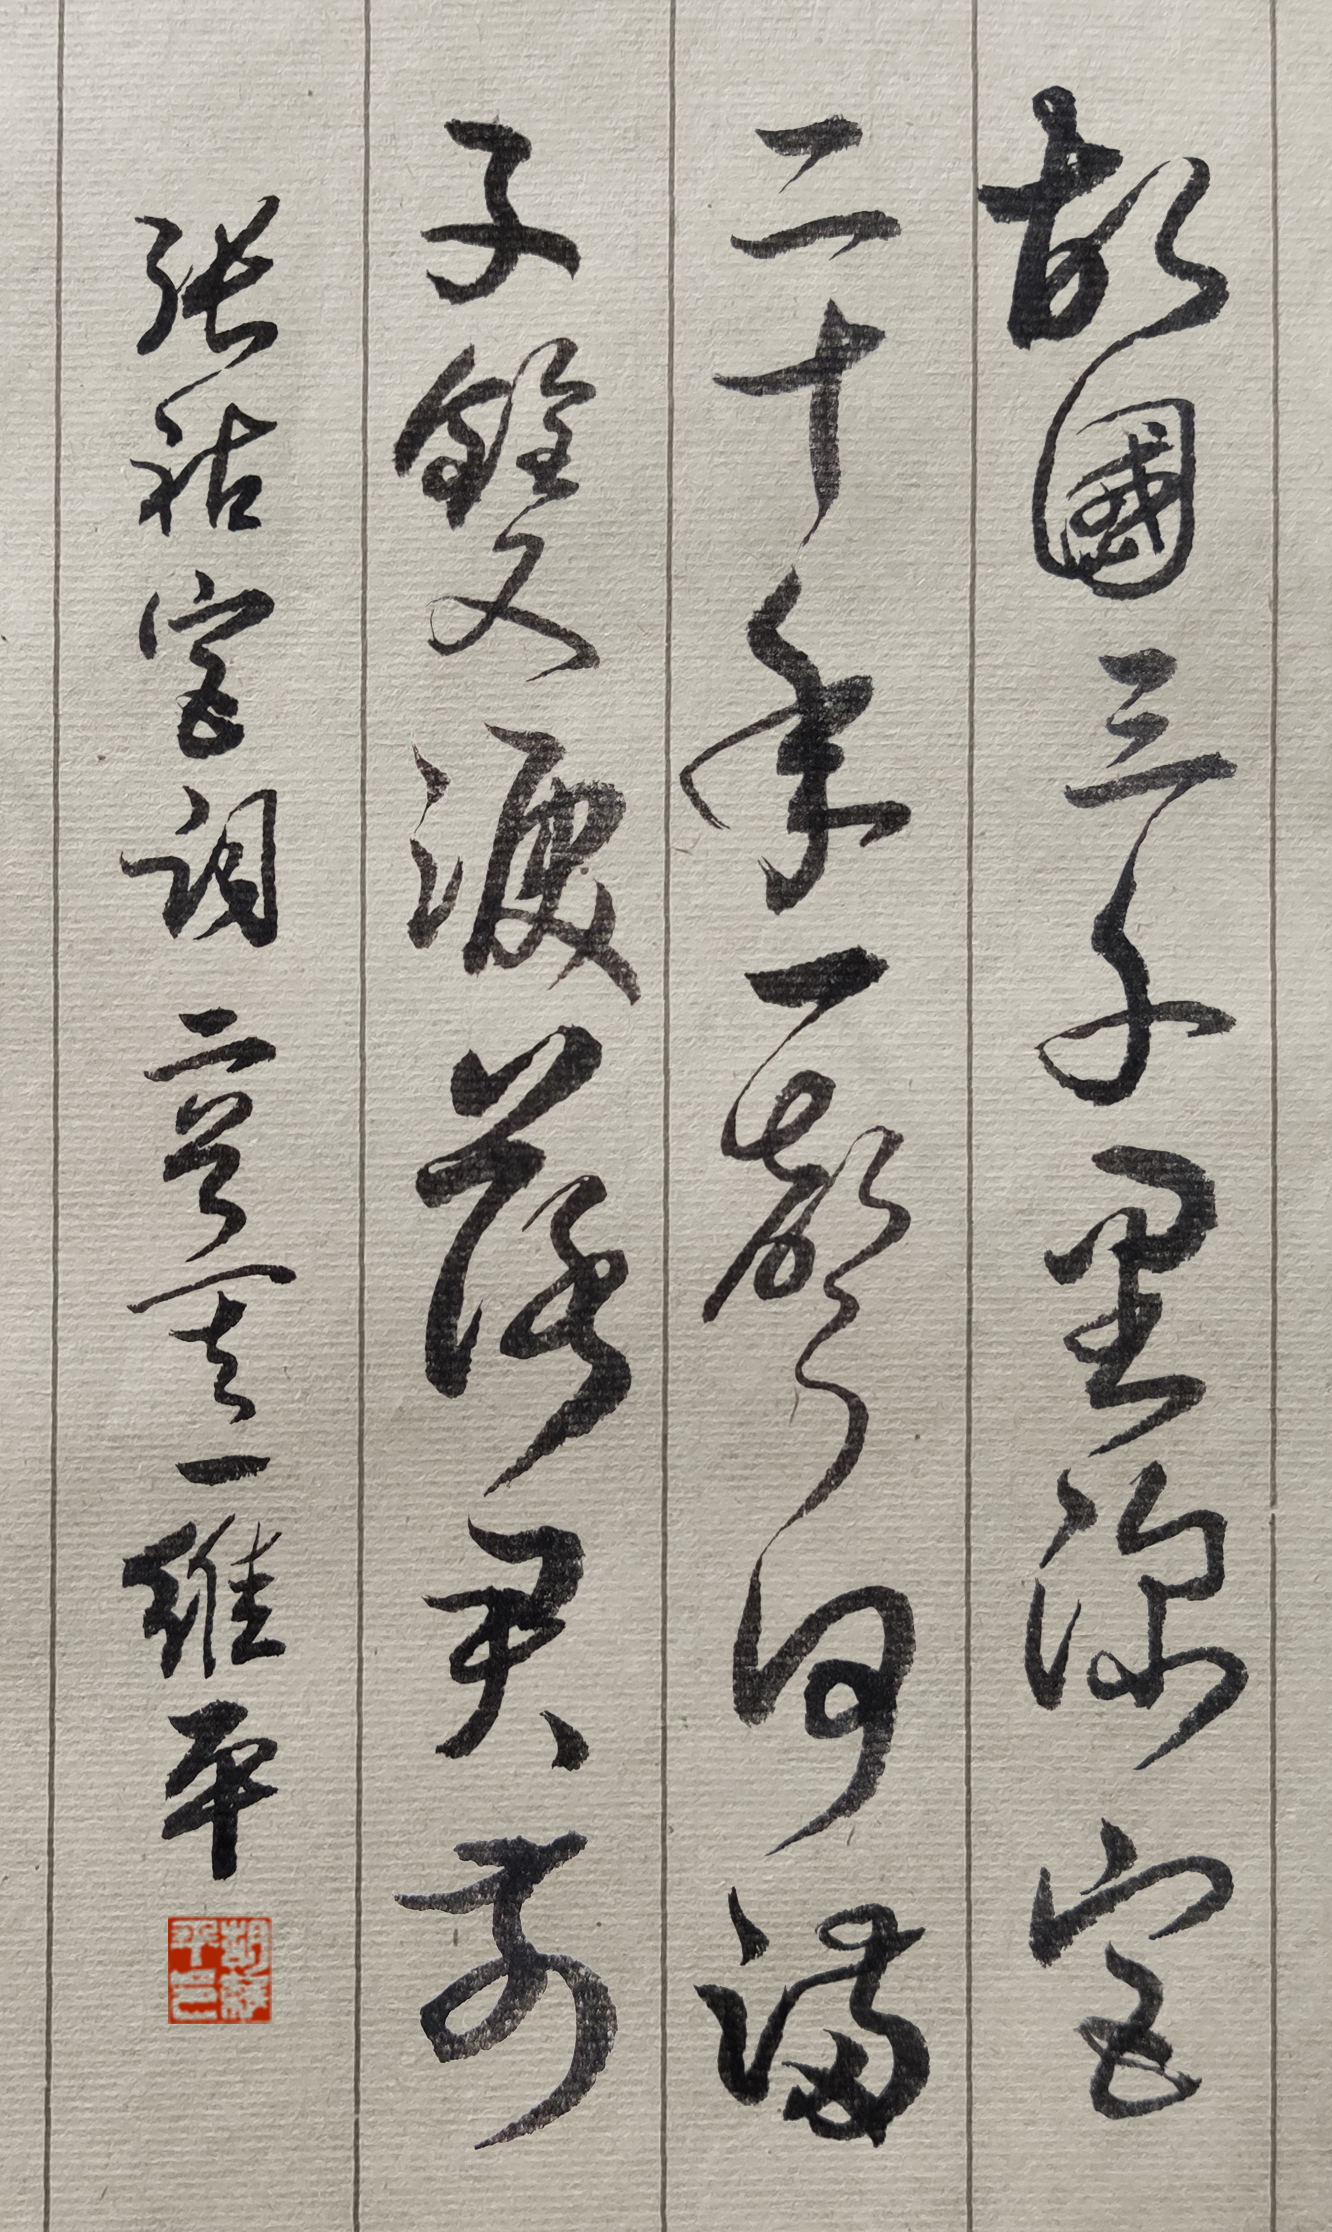 故國三千里深宮
二十年一聲何滿
子雙淚落君前
張祜宮詞二首其一維平
胡維平印